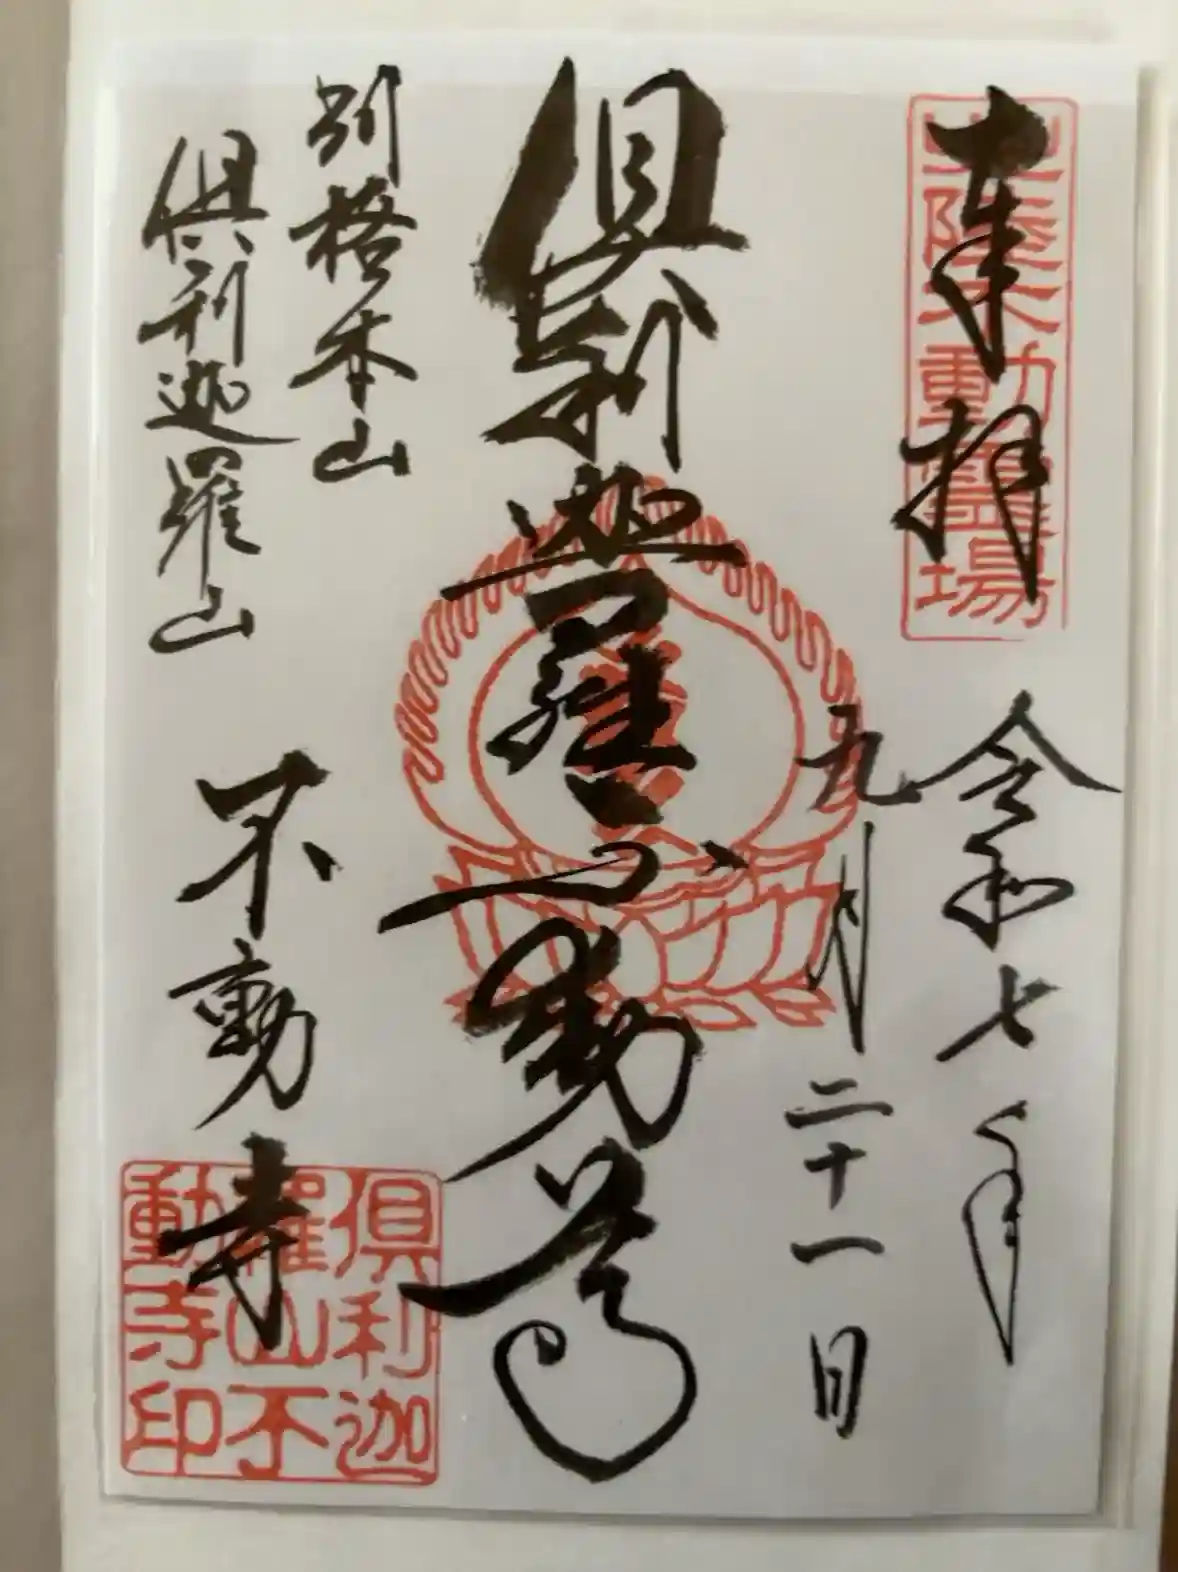 奉拝
北陸不動霊場
令和七年
九月二十一日
倶利迦羅不動尊
別格本山
倶利迦羅山
不動寺
倶利迦
羅山不
動寺印